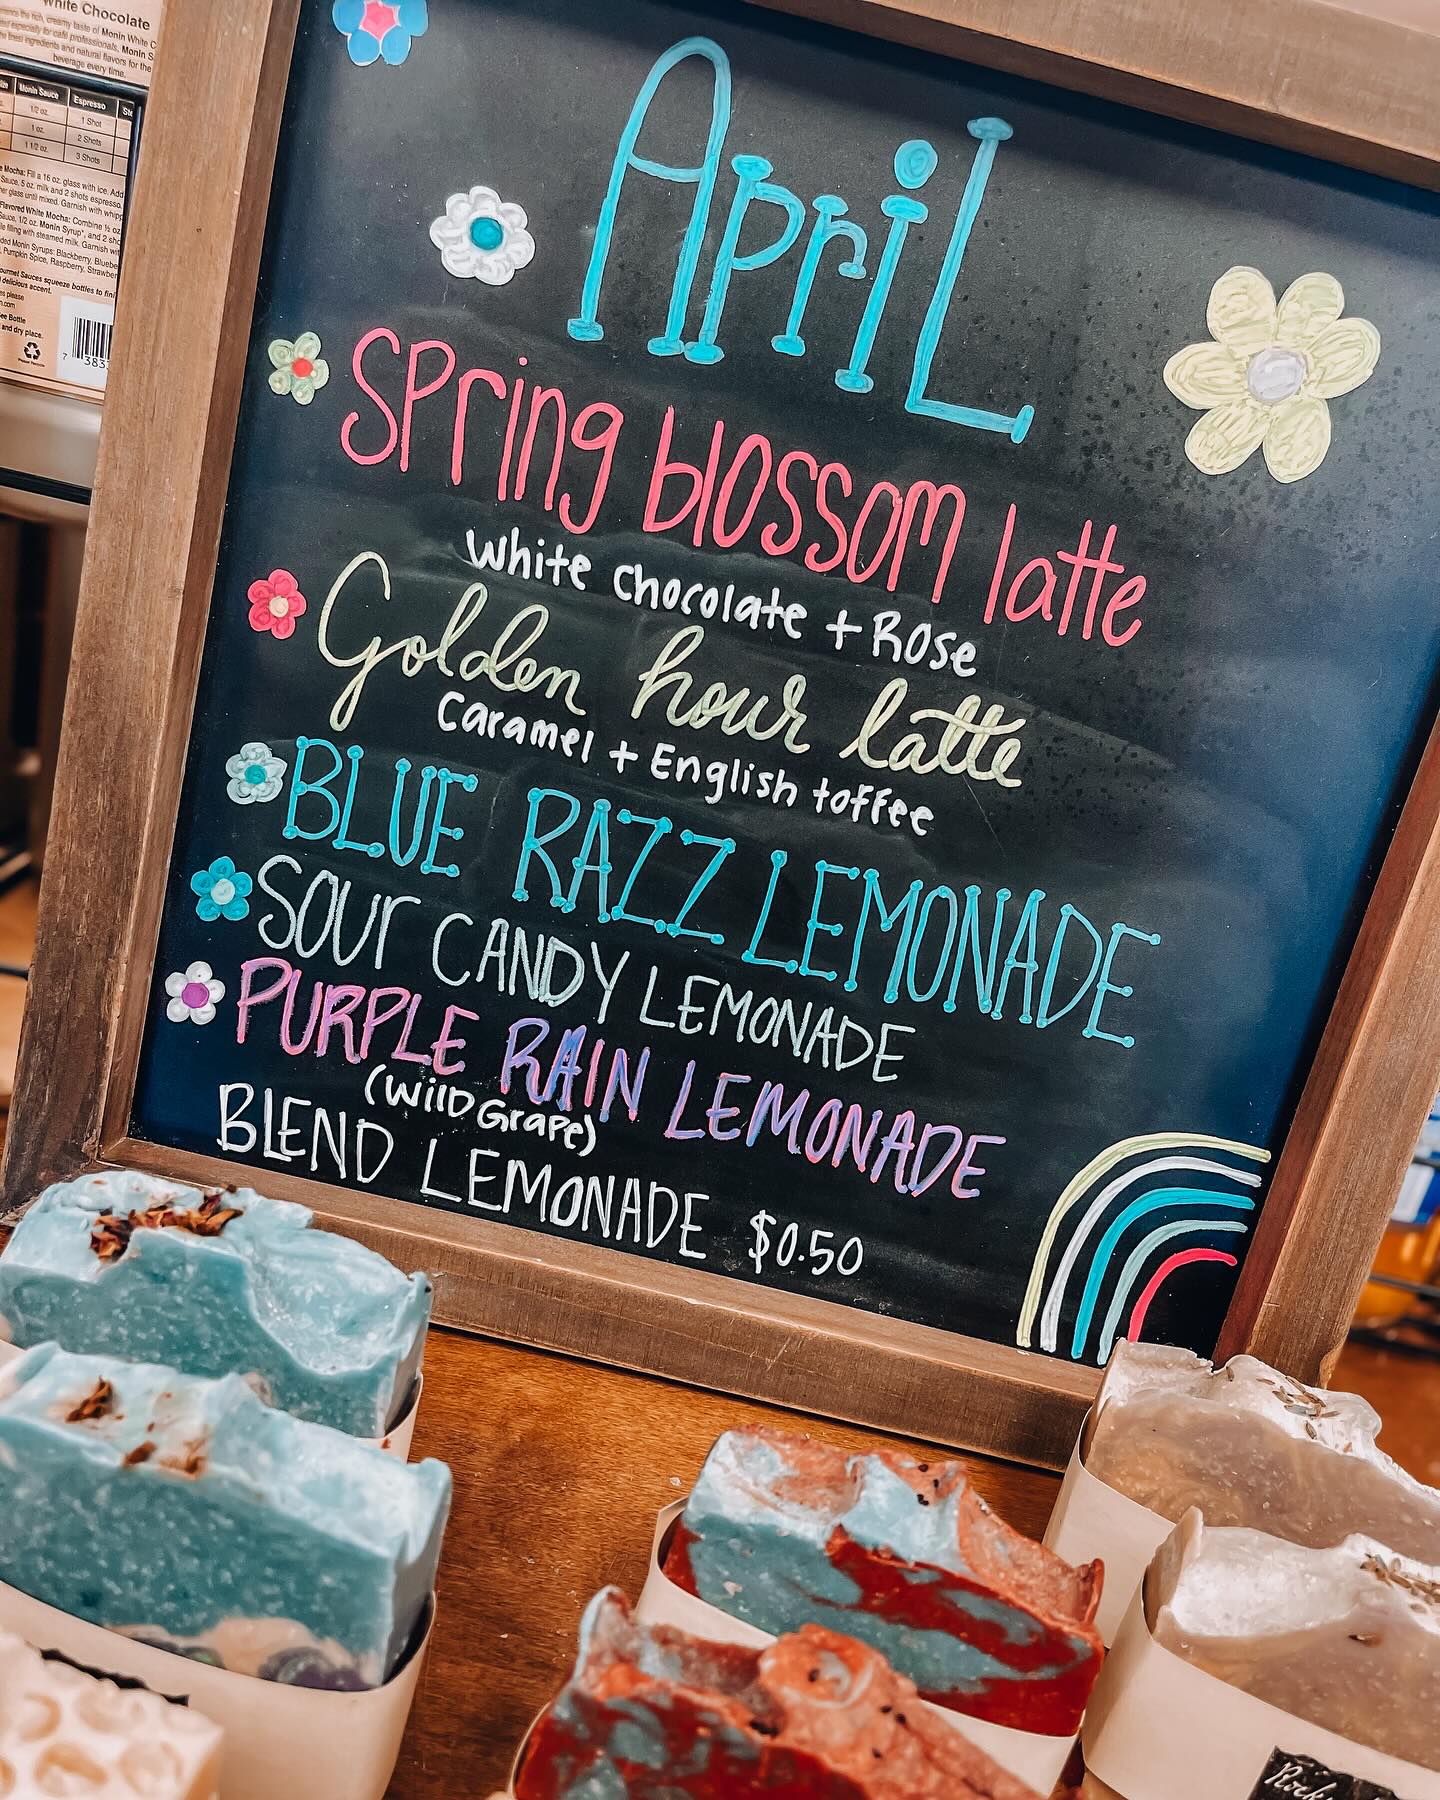 White Chocolate
beverage every time.
Monin Sauce Espresso
1/2 oz. 1 Shot
1 oz. 2 Shots
1 1/2 oz. 3 Shots
and dry place.
April
Spring blossom latte
White chocolate + Rose
Golden hour latte
Caramel + English toffee
BLUE RAZZ LEMONADE
SOUr CANDY LEMONADE
PURPLE RAIN LEMONADE
(Wild Grape)
BLEND LEMONADE $0.50